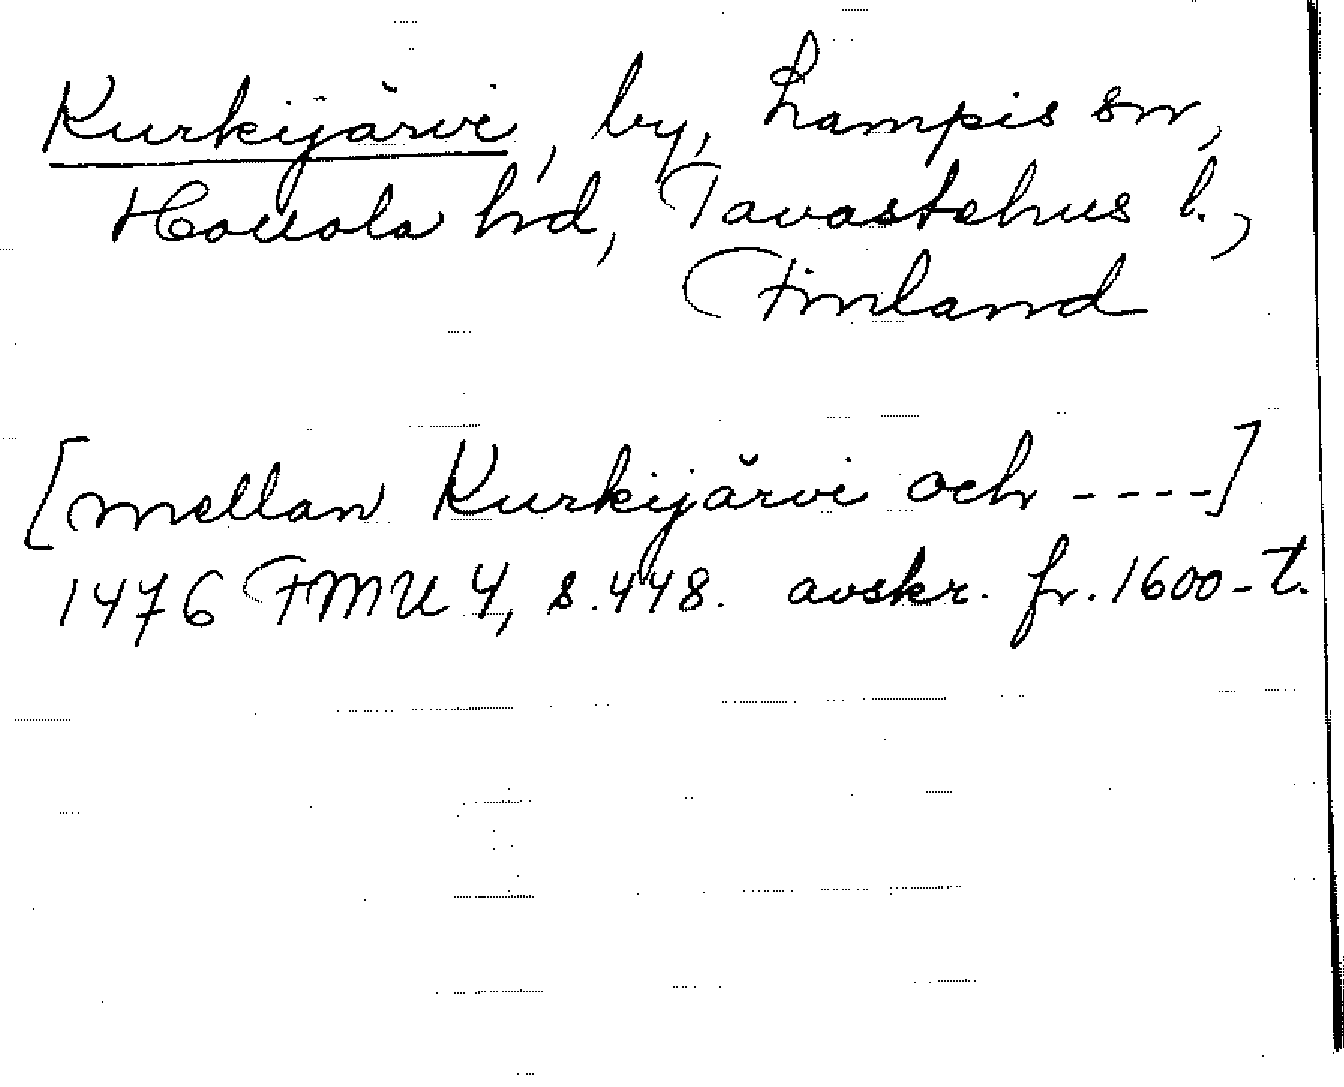 Kurkijärvi, by, Lampis sn,
Hollola hd, Tavastehus l.,
Finland
[mellan Kurkijärvi och ----]
1476 FMU 4, s. 448. avskr. fr. 1600-t.